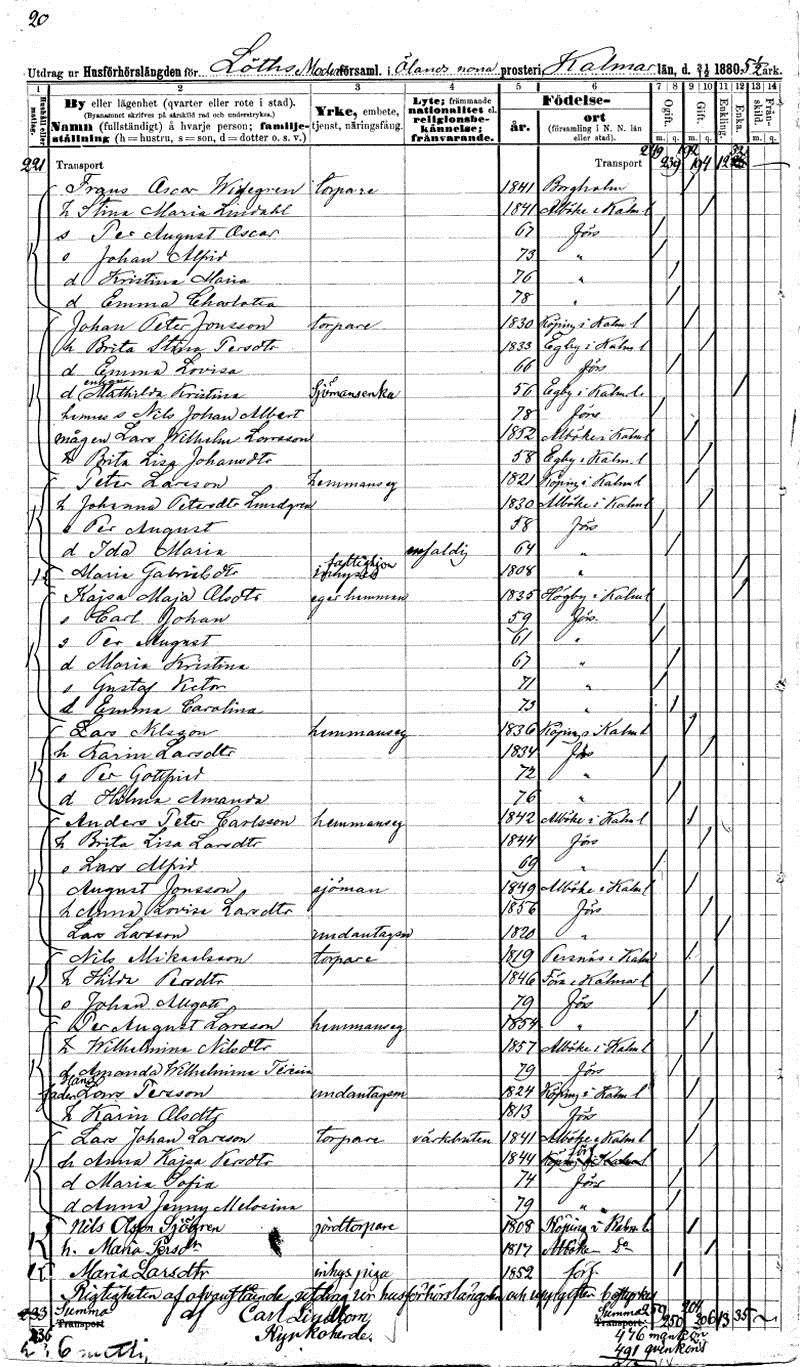 20
Utdrag ur Husförhörslängden för Löths Moderförsaml. i Ölands norra prosteri, Kalmar län, d. 31/12 1880. 5 1/2 ark.
1 2 3 4 5 6 7 8 9 10 11 12 13 14
By eller lägenhet (qvarter eller rote i stad).
(Byanamnet skrifves på särskild rad och understrykes.)
Namn (fullständigt) å hvarje person; familjeställning (h = hustru, s = son, d = dotter o. s. v.)
Yrke, embete, tjenst, näringsfång.
Lyte; främmande nationalitet el. religionsbekännelse; frånvarande.
Födelse-
år. ort (församling i N. N. län eller stad).
Ogift. Gift. Enkling. Enka. Från-skild.
m. q. m. q. m. q.
221 Transport Transport 249 239 192 194 12 32
Frans Oscar Widegren torpare 1841 Borgholm
h Stina Maria Lindahl 1841 Alböke i Kalm. l
s Per August Oscar 67 förs
s Johan Alfrid 73 "
d Kristina Maria 76 "
d Emma Charlotta 78 "
Johan Peter Jonsson torpare 1830 Köping i Kalm l
h Brita Stina Persdtr 1833 Egby i Kalm l
d Emma Lovisa 66 förs
d enkan Mathilda Kristina Sjömansenka 56 Egby i Kalm l.
hennes s Nils Johan Albert 78 förs
mågen Lars Wilhelm Larsson 1852 Alböke i Kalm l
h Brita Lisa Johansdtr 58 Egby i Kalm. l
Peter Larsson hemmanseg 1821 Köping i Kalm l
h Johanna Petersdtr Lundgren 1830 Alböke i Kalm l
s Per August 58 förs
d Ida Maria faldig 64 "
Maria Gabrielsdtr fattighjon inhyses 1808 "
Kajsa Maja Olsdtr eger hemman 1835 Högby i Kalm l
s Carl Johan 59 förs.
s Per August 61 "
d Maria Kristina 67 "
s Gustaf Victor 71 "
d Emma Carolina 73 "
Lars Nilsson hemmanseg 1836 Köping i Kalm l
h Karin Larsdtr 1834 förs
s Per Gottfrid 72 "
d Hilma Amanda 76 "
Anders Peter Carlsson hemmanseg 1842 Alböke i Kalm l
h Brita Lisa Larsdtr 1844 förs
s Lars Alfrid 69 "
August Jonsson sjöman 1849 Alböke i Kalm l
h Anna Lovisa Larsdtr 1856 förs
Lars Larsson undantagsm 1820 "
Nils Mikaelsson torpare 1819 Persnäs i Kalm
h Hilda Persdtr 1846 Föra i Kalmar l
s Johan August 79 förs
Per August Larsson hemmanseg 1854 "
h Wilhelmina Nilsdtr 1857 Alböke i Kalm l
d Amanda Wilhelmina Teresia 79 förs
hans fader Lars Persson undantagsm 1824 Köping i Kalm l
h Karin Olsdtr 1813 förs
Lars Johan Larsson torpare värkbruten 1841 Alböke i Kalm l
h Anna Kajsa Persdtr 1844 förs
d Maria Sofia 74 förs
d Anna Jenny Melosina 79 "
Nils Olsson Sjögren jordtorpare 1808 Köping i Kalm l.
h. Maria Persdtr 1817 Alböke Do
Maria Larsdtr inhys piga 1852 förs.
Rigtigheten af ofvanstående utdrag ur husförhörslängden och uppgifter betygar
233 Summa Transport af Carl Lindblom Summa Transport 259 250 204 206 13 35
236 Kyrkoherde. 476 mankön
6 491 qvinkön